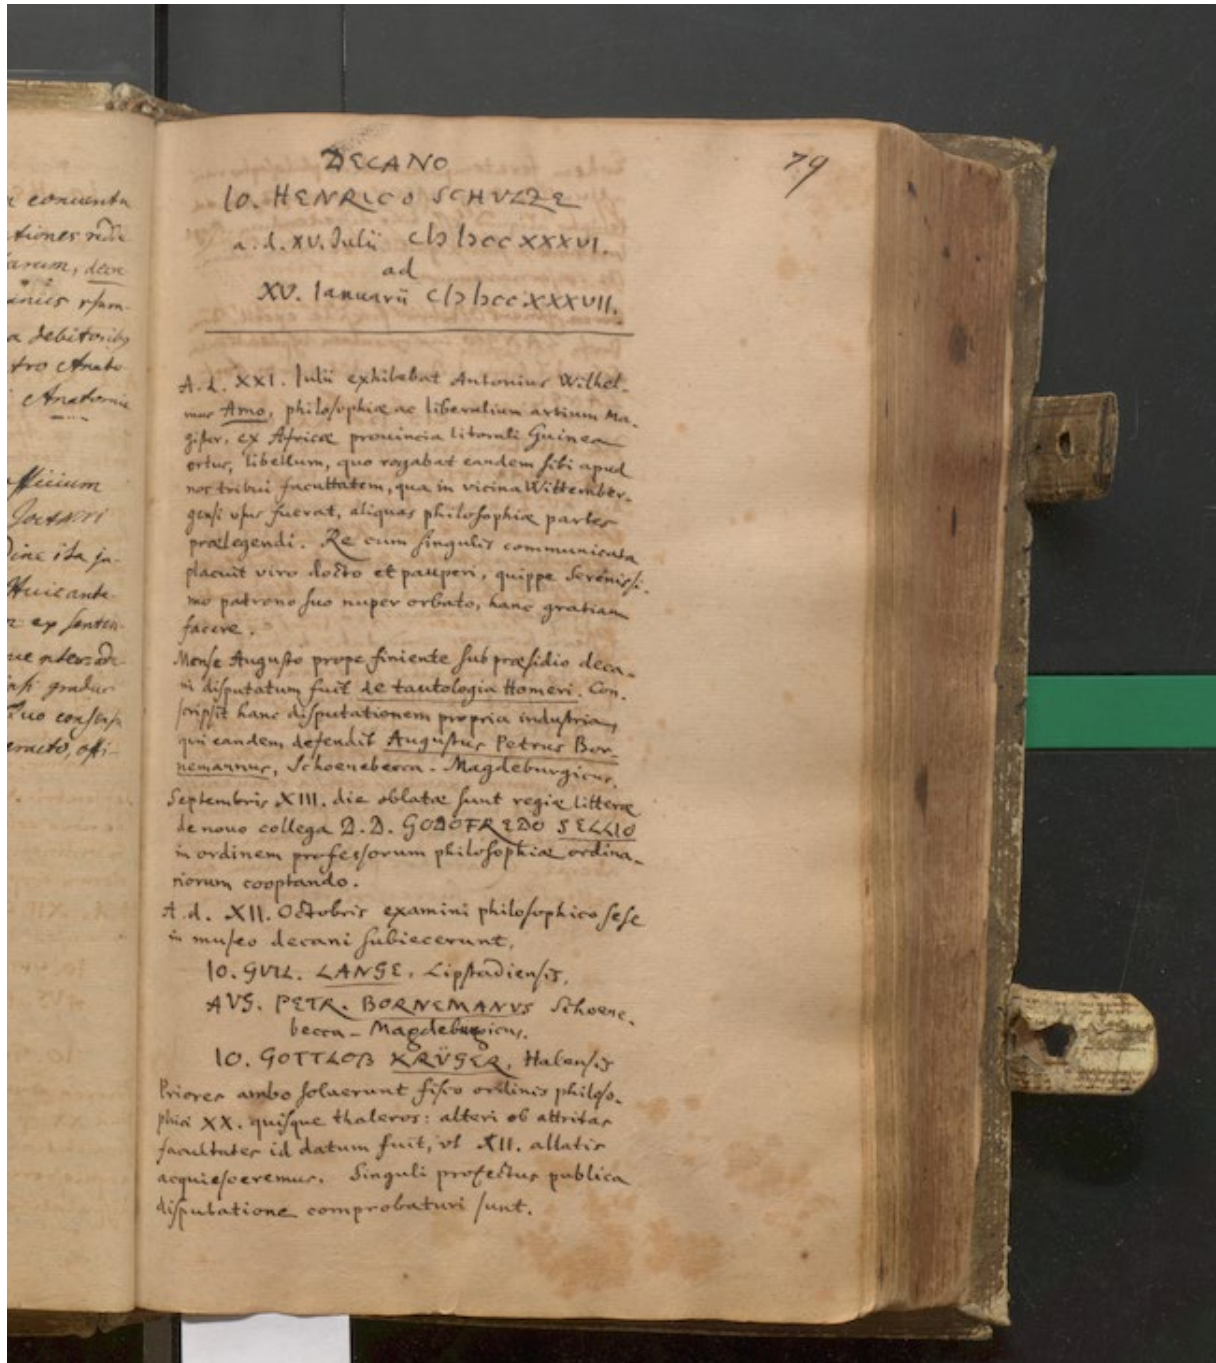 e conuentu
tiones redu
arum, decre
a debitoribus
Anatomia
officium
Huic ante
ex senten-
gradus
Quo consensu
79
DECANO
IO. HENRICO SCHVLZE
a. d. XV. Julii CIↃIↃCCXXXVI.
ad
XV. Ianuarii CIↃIↃCCXXXVII.
A. d. XXI. Iulii exhibebat Antonius Wilhel-
mus Amo, philosophiæ ac liberalium artium Ma-
gister, ex Africæ prouincia litorali Guinea
ortus, libellum, quo rogabat eandem sibi apud
nos tribui facultatem, qua in vicina Wittember-
gensi vsus fuerat, aliquas philosophiæ partes
prælegendi. Re cum singulis communicata
placuit viro docto et pauperi, quippe Serenissi-
mo patrono suo nuper orbato, hanc gratiam
facere.
Mense Augusto prope finiente sub præsidio deca-
ni disputatum fuit de tautologia Homeri. Con-
scripsit hanc disputationem propria industria,
qui eandem defendit Augustus Petrus Bor-
nemannus, Schoenebecca-Magdeburgicus.
Septembris XIII. die oblatæ sunt regiæ litteræ
de nouo collega D. D. GODOFREDO SELLIO
in ordinem professorum philosophiæ ordina-
riorum cooptando.
A. d. XII. Octobris examini philosophico sese
in museo decani subiecerunt,
IO. GUIL. LANGE, Lipstadiensis,
AVG. PETR. BORNEMANVS Schoene-
becca-Magdeburgicus.
IO. GOTTLOB KRÜGER, Halensis
Priores ambo soluerunt fisco ordinis philoso-
phici XX. quisque thaleros: alteri ob attritas
facultates id datum fuit, vt XII. allatis
acquiesceremus. Singuli profectus publica
disputatione comprobaturi sunt.